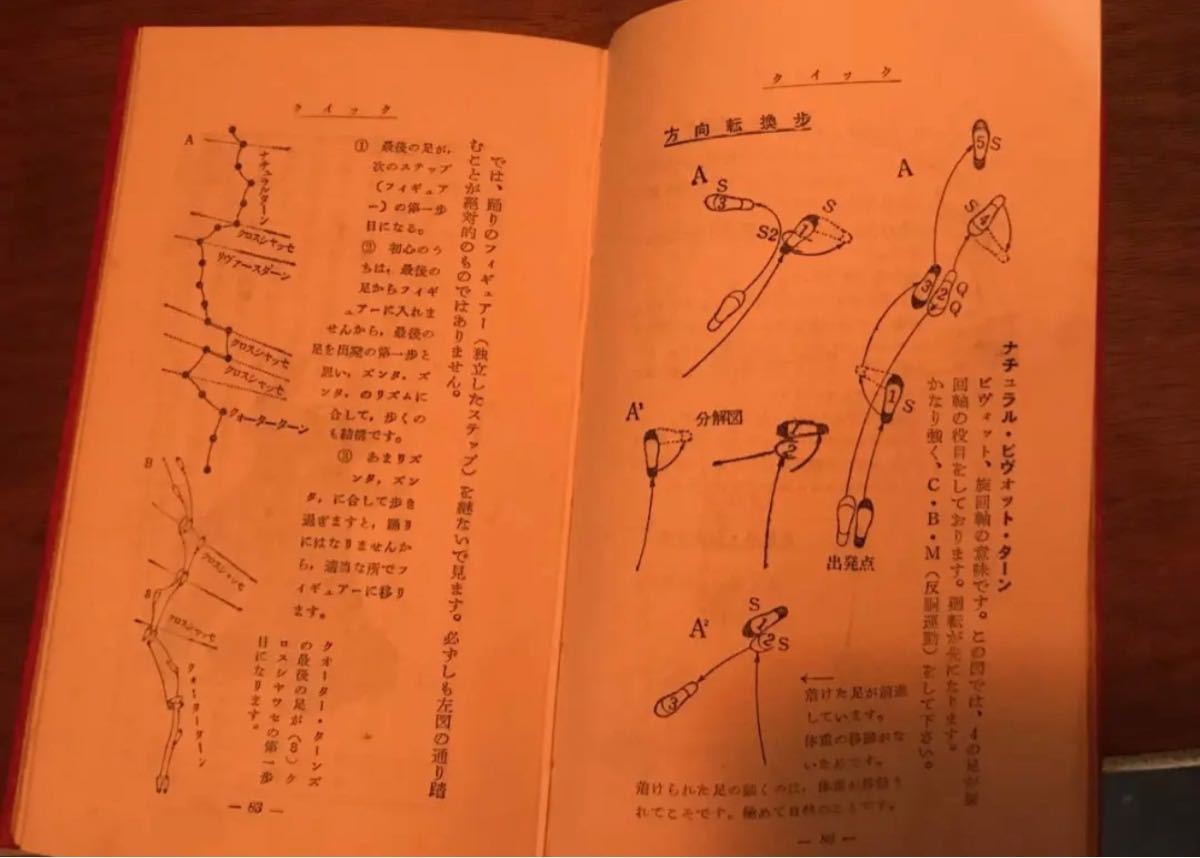 クイック
方向転換歩
A
S
3
S
1
S2
A¹
分解図
2
A²
S
1
2
S
3
A
5
S
S
4
3
2
Q
Q
1
S
出発点
ナチュラル・ピヴォット・ターン
ピヴィット、旋回軸の意味です。この図では、4の足が旋
回軸の役目をしております。廻転が先になります。
かなり強く、C・B・M(反胴運動)をして下さい。
←
着けた足が前進
しています。
体重の移動がな
いためです。
着けられた足の動くのは、体重が移動さ
れてこそです。極めて自然のことです。
クイック
では、踊りのフィギュアー(独立したステップ)を継ないで見ます。必ずしも左図の通り踏
むことが絶対的のものではありません。
① 最後の足が,
次のステップ
(フィギュア
ー)の第一歩
目になる。
② 初心のう
ちは,最後の
足からフィギ
ュアーに入れま
せんから,最後の
足を出発の第一歩と
思い,ズンタ,ズ
ンタ,のリズムに
合して,歩くの
も結構です。
③ あまりズ
ンタ,ズン
タ,に合して歩き
過ぎますと,踊り
にはなりませんか
ら,適当な所でフ
ィギュアーに移り
ます。
A
ナチュラルターン
クロスシャッセ
リヴァースターン
クロスシャッセ
クロスシャッセ
クォーターターン
B
クロスシャッセ
8
クロスシャッセ
クォーターターン
クオーター・ターンズ
の最後の足が(8)ク
ロスシヤツセの第一歩
目になります。
— 83 —